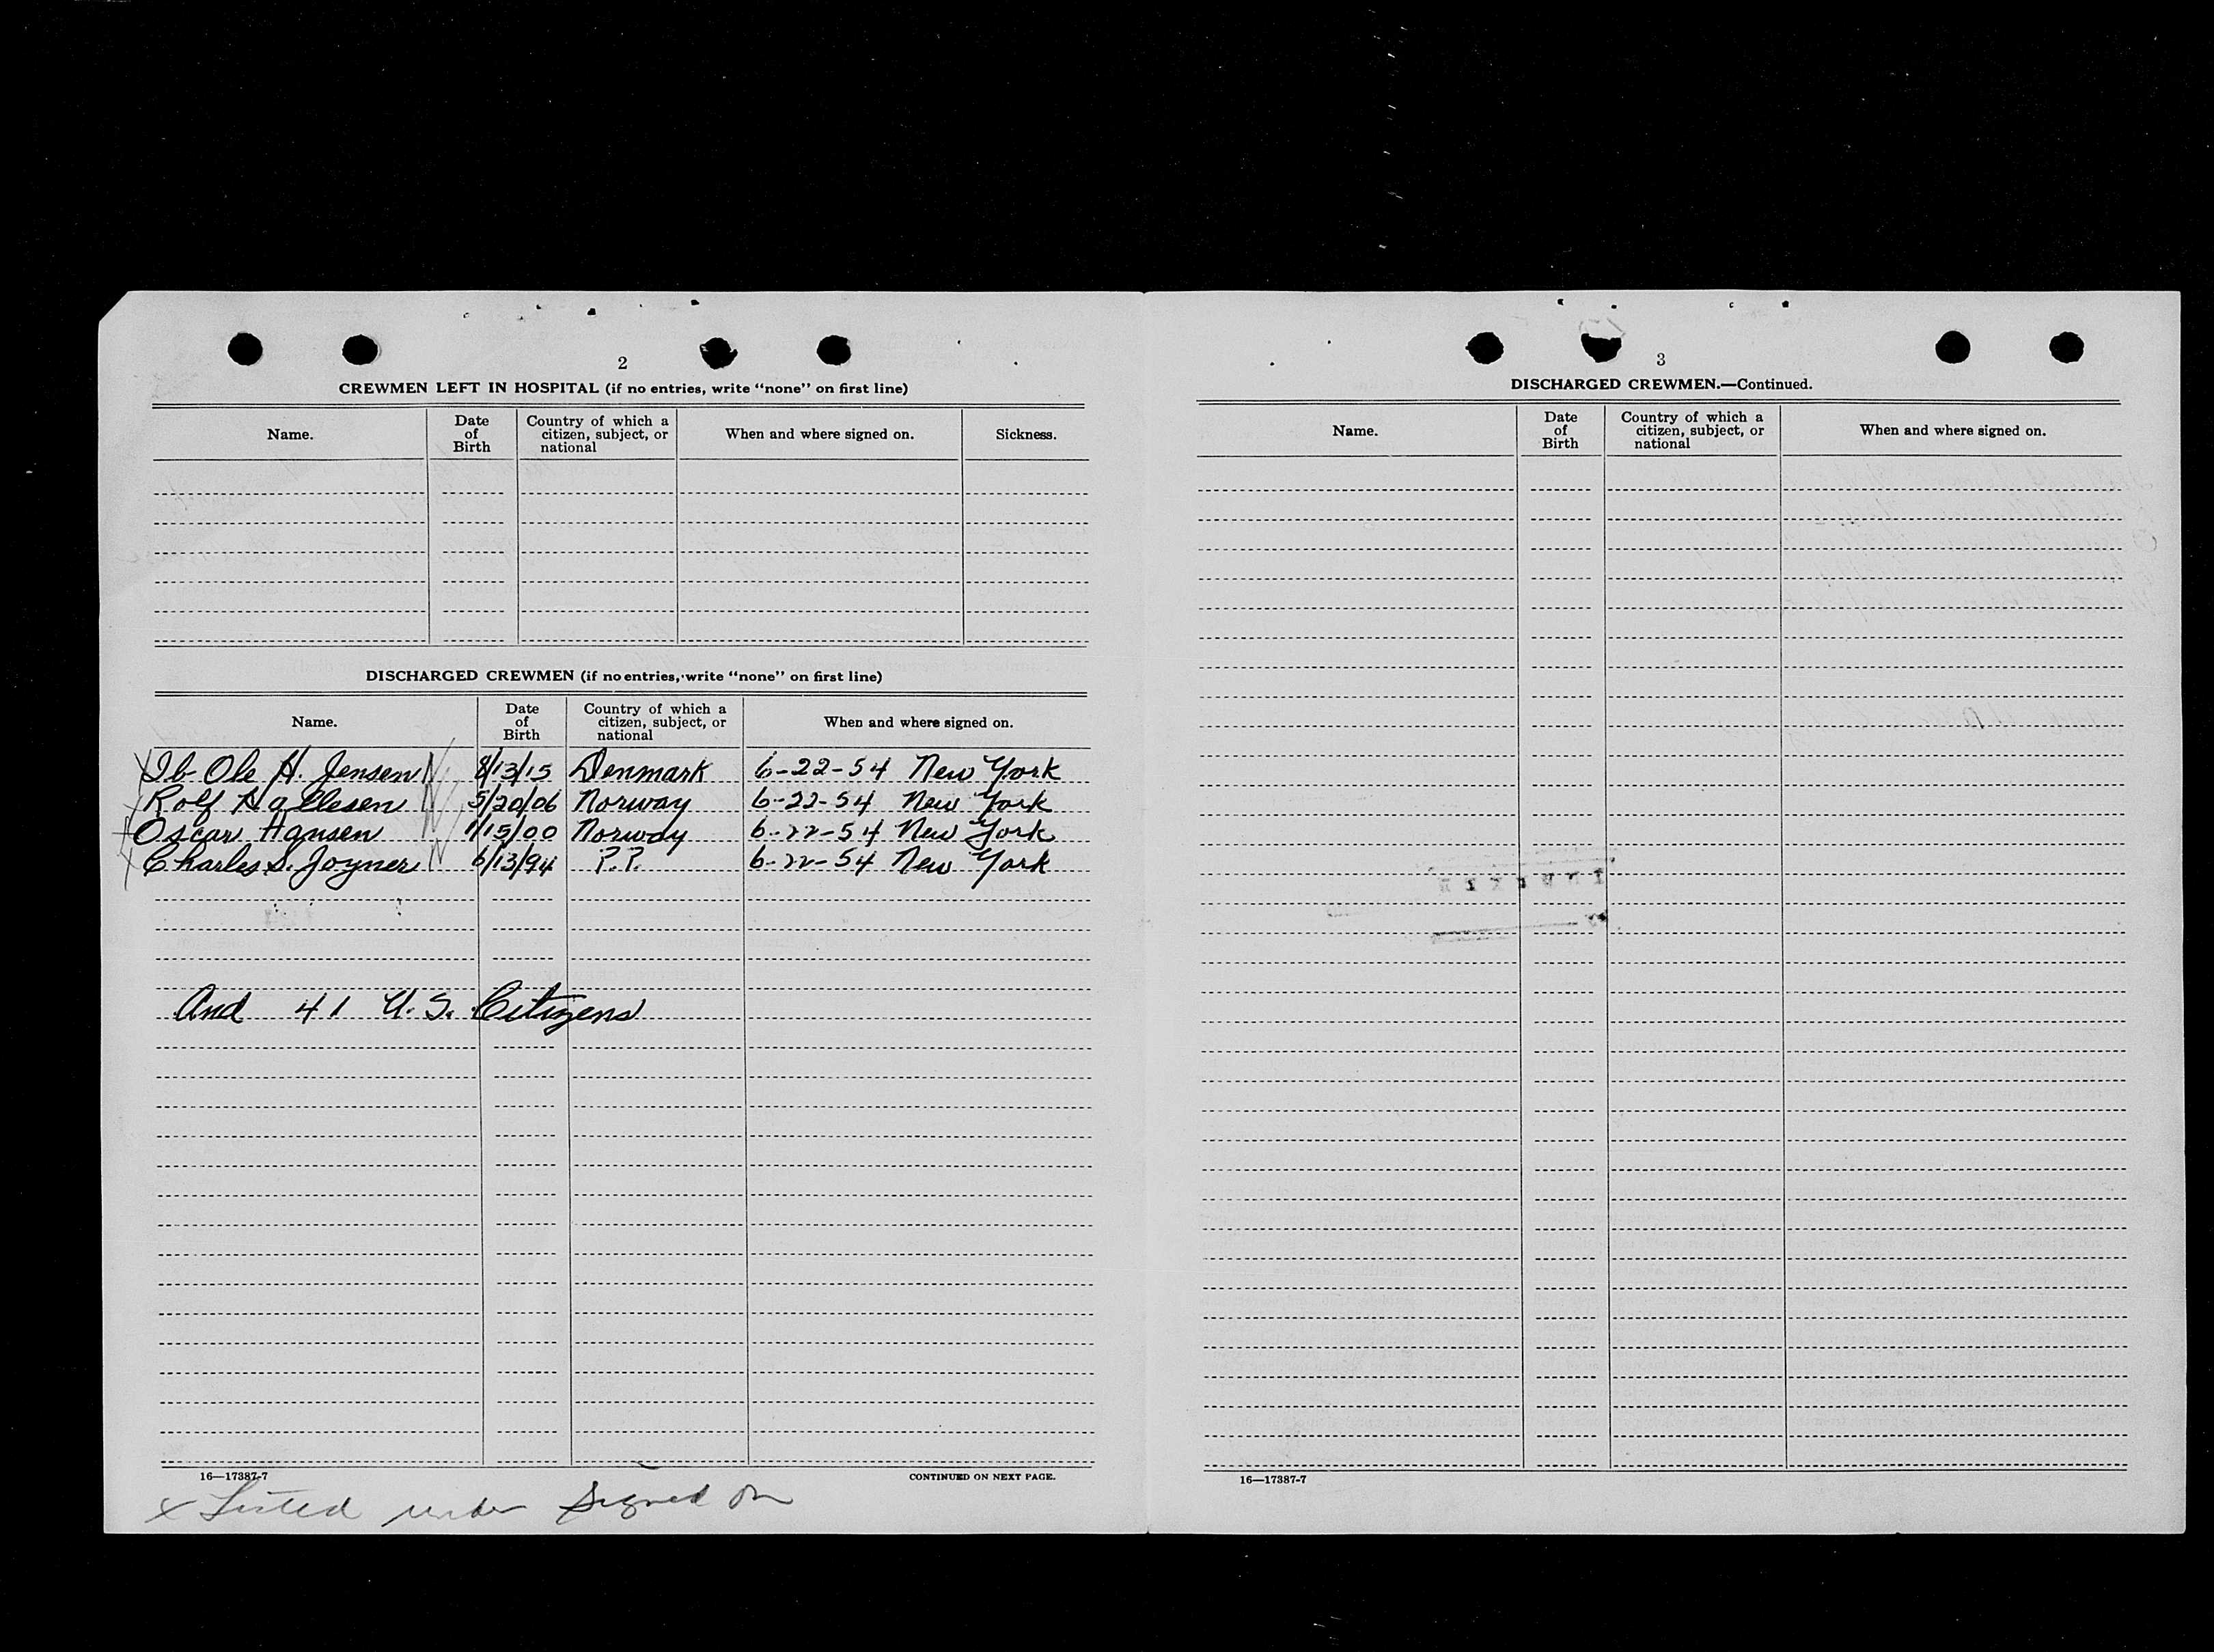 2
CREWMEN LEFT IN HOSPITAL (if no entries, write "none" on first line)
Name. Date of Birth Country of which a citizen, subject, or national When and where signed on. Sickness.
DISCHARGED CREWMEN (if no entries, write "none" on first line)
Name. Date of Birth Country of which a citizen, subject, or national When and where signed on.
X Ib Ole H. Jensen N 8/13/15 Denmark 6-22-54 New York
X Rolf Hallesen N 5/20/06 Norway 6-22-54 New York
X Oscar Hansen N 1/15/00 Norway 6-22-54 New York
X Charles S. Joyner N 6/13/94 P.P. 6-22-54 New York
And 41 U.S. Citizens
16—17387-7 CONTINUED ON NEXT PAGE.
x Listed under signed on
3
DISCHARGED CREWMEN.—Continued.
Name. Date of Birth Country of which a citizen, subject, or national When and where signed on.
16—17387-7